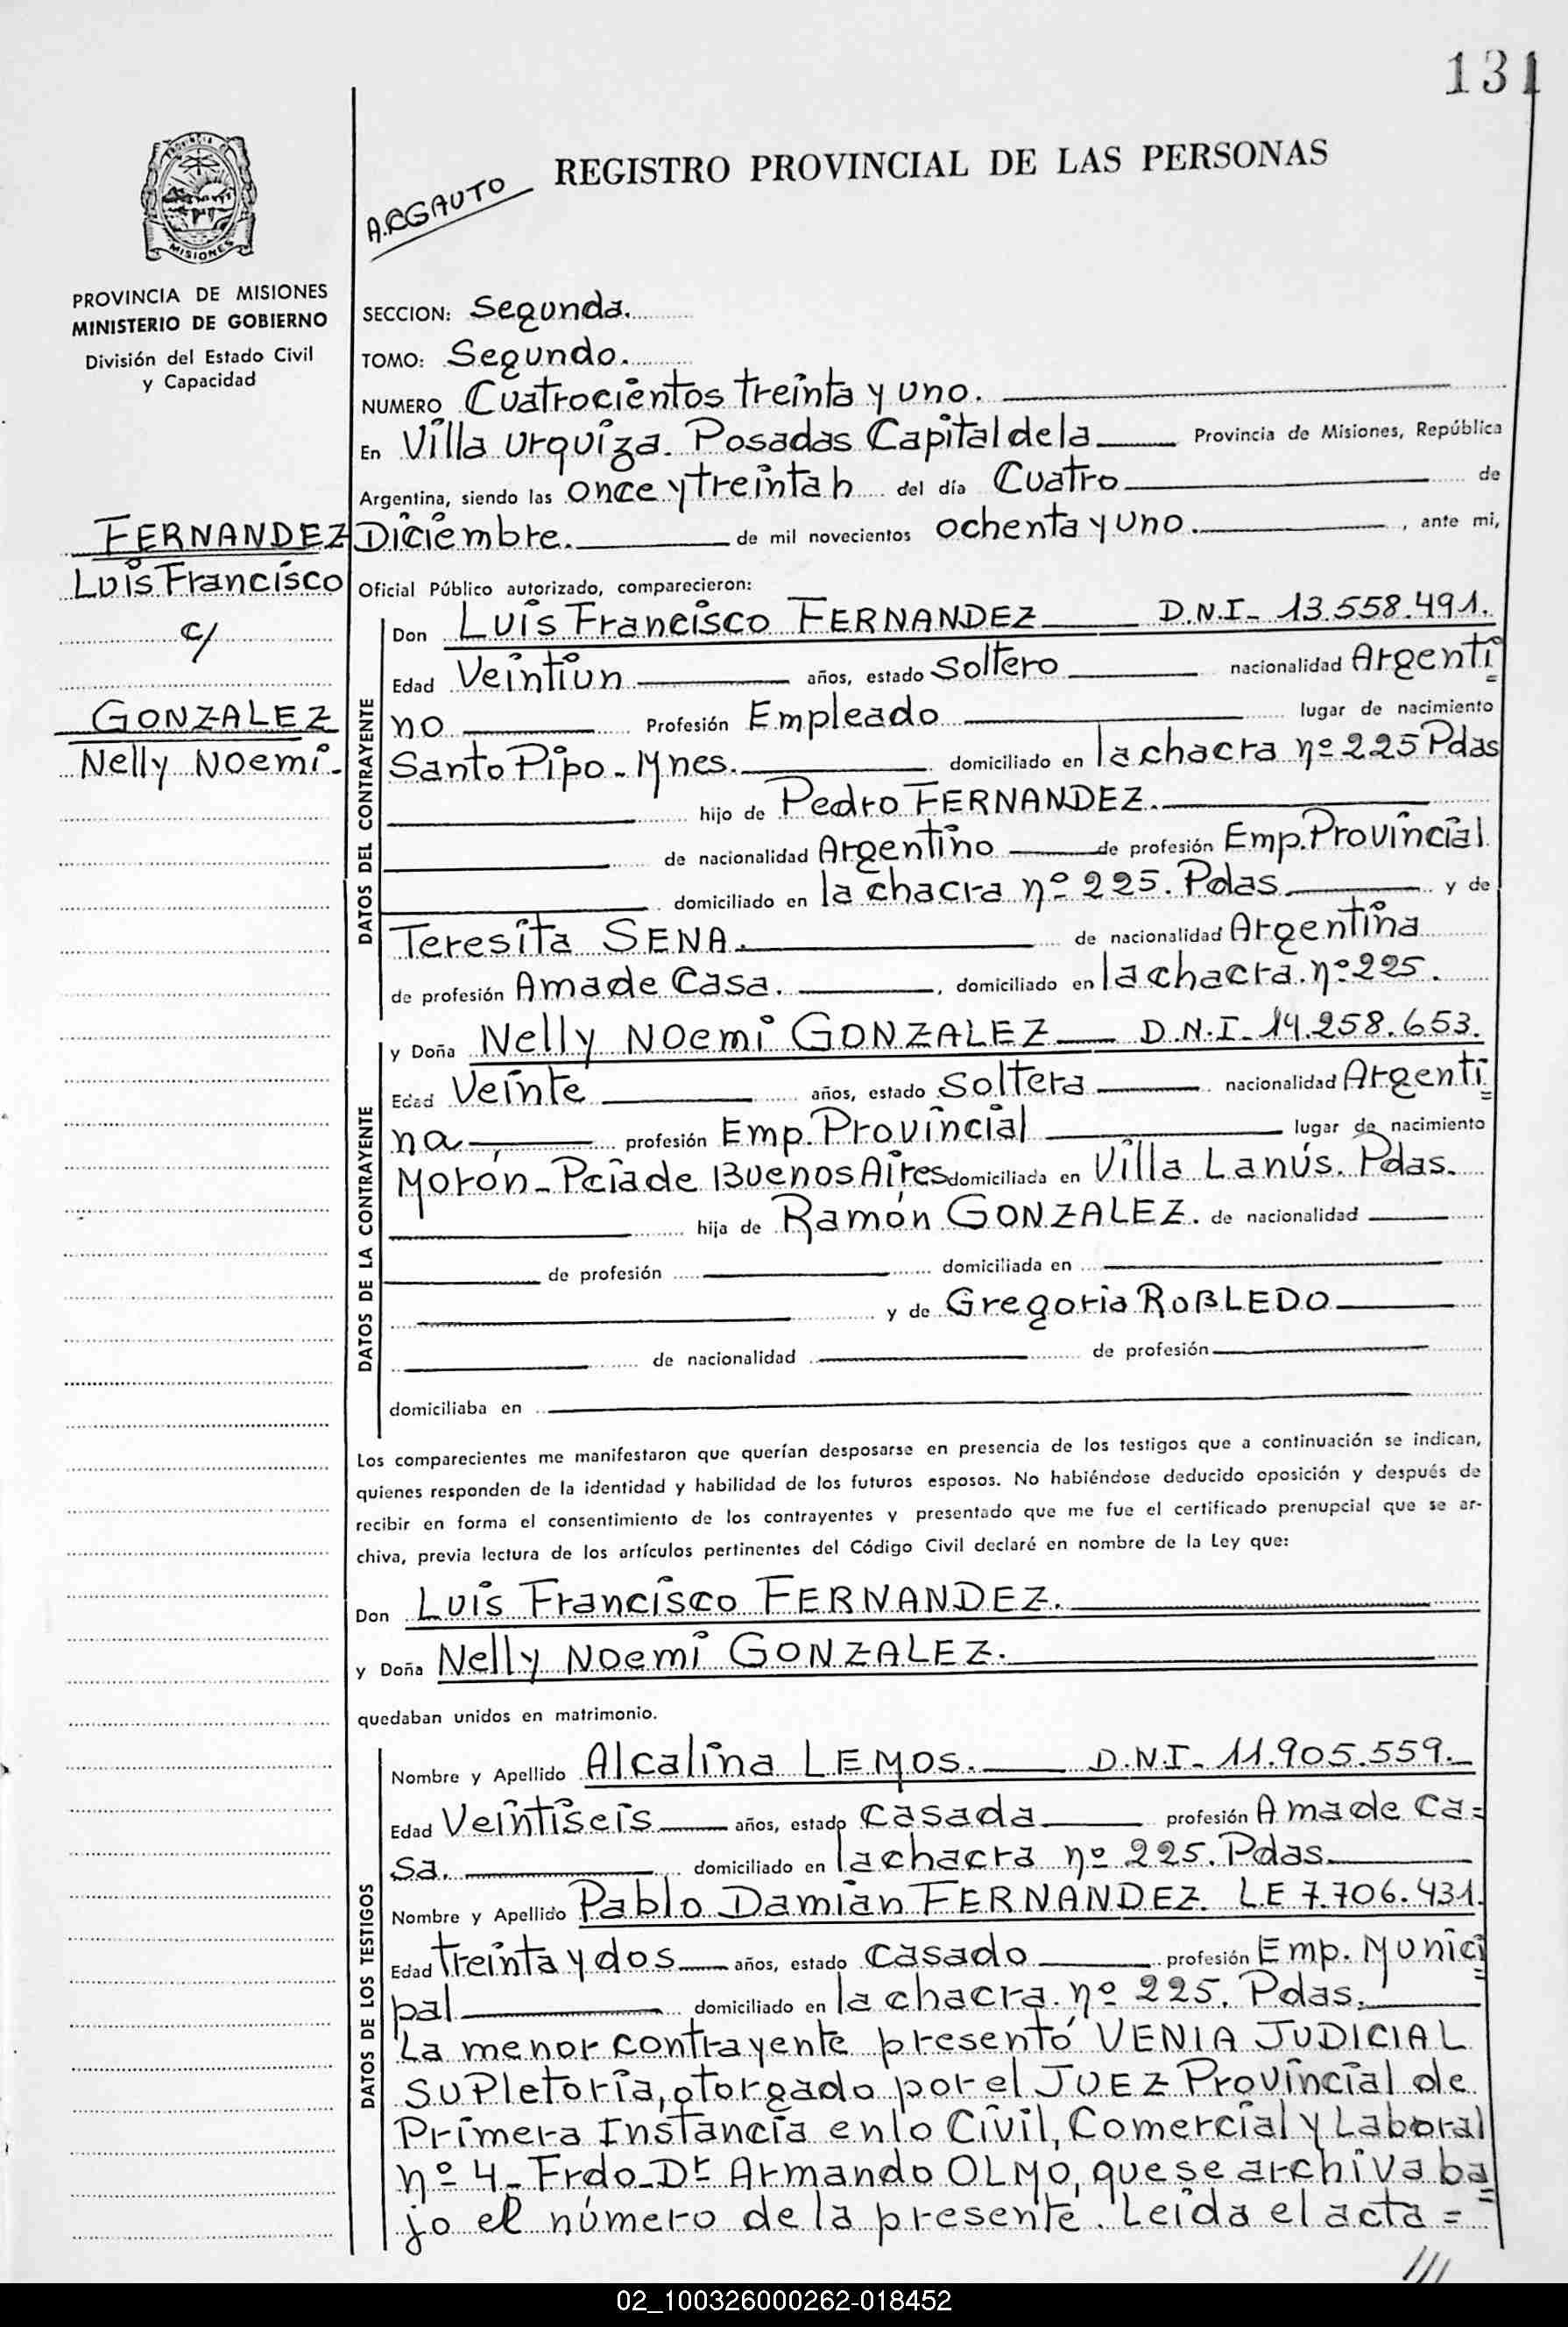 131
REGISTRO PROVINCIAL DE LAS PERSONAS
MISIONES
PROVINCIA DE MISIONES
MINISTERIO DE GOBIERNO
División del Estado Civil
y Capacidad
SECCION: Segunda.
TOMO: Segundo.
NUMERO Cuatrocientos treinta y uno.
En Villa Urquiza. Posadas Capital de la Provincia de Misiones, República
Argentina, siendo las once y treinta h del día Cuatro de
Diciembre. de mil novecientos ochenta y uno. , ante mi,
Oficial Público autorizado, comparecieron:
FERNANDEZ
Luis Francisco
c/
GONZALEZ
Nelly Noemi.
DATOS DEL CONTRAYENTE
Don Luis Francisco FERNANDEZ D.N.I- 13.558.491.
Edad Veintiun años, estado Soltero nacionalidad Argenti
no Profesión Empleado lugar de nacimiento
Santo Pipo - Mnes. domiciliado en la chacra nº 225 Pdas
hijo de Pedro FERNANDEZ.
de nacionalidad Argentino de profesión Emp. Provincial
domiciliado en la chacra nº 225. Pdas. y de
Teresita SENA. de nacionalidad Argentina
de profesión Ama de Casa. , domiciliado en la chacra. nº 225.
DATOS DE LA CONTRAYENTE
y Doña Nelly Noemi GONZALEZ D.N.I- 14.258.653.
Edad Veinte años, estado Soltera nacionalidad Argenti=
na profesión Emp. Provincial lugar de nacimiento
Morón - Pcia de Buenos Aires domiciliada en Villa Lanús. Pdas.
hija de Ramón GONZALEZ. de nacionalidad
de profesión domiciliada en
y de Gregoria ROBLEDO
de nacionalidad de profesión
domiciliaba en
Los comparecientes me manifestaron que querían desposarse en presencia de los testigos que a continuación se indican,
quienes responden de la identidad y habilidad de los futuros esposos. No habiéndose deducido oposición y después de
recibir en forma el consentimiento de los contrayentes y presentado que me fue el certificado prenupcial que se ar-
chiva, previa lectura de los artículos pertinentes del Código Civil declaré en nombre de la Ley que:
Don Luis Francisco FERNANDEZ.
y Doña Nelly Noemi GONZALEZ.
quedaban unidos en matrimonio.
DATOS DE LOS TESTIGOS
Nombre y Apellido Alcalina LEMOS. D.N.I- 11.905.559.
Edad Veintiseis años, estado casada profesión Ama de Ca=
sa. domiciliado en la chacra nº 225. Pdas.
Nombre y Apellido Pablo Damian FERNANDEZ. L.E 7.706.431.
Edad treinta y dos años, estado casado profesión Emp. Munici
pal domiciliado en la chacra. nº 225. Pdas.
La menor contrayente presentó VENIA JUDICIAL
supletoria, otorgado por el JUEZ Provincial de
Primera Instancia en lo Civil, Comercial y Laboral
nº 4 - Frdo - Dr Armando OLMO, que se archiva ba=
jo el número de la presente. Leida el acta =
///
02_100326000262-018452